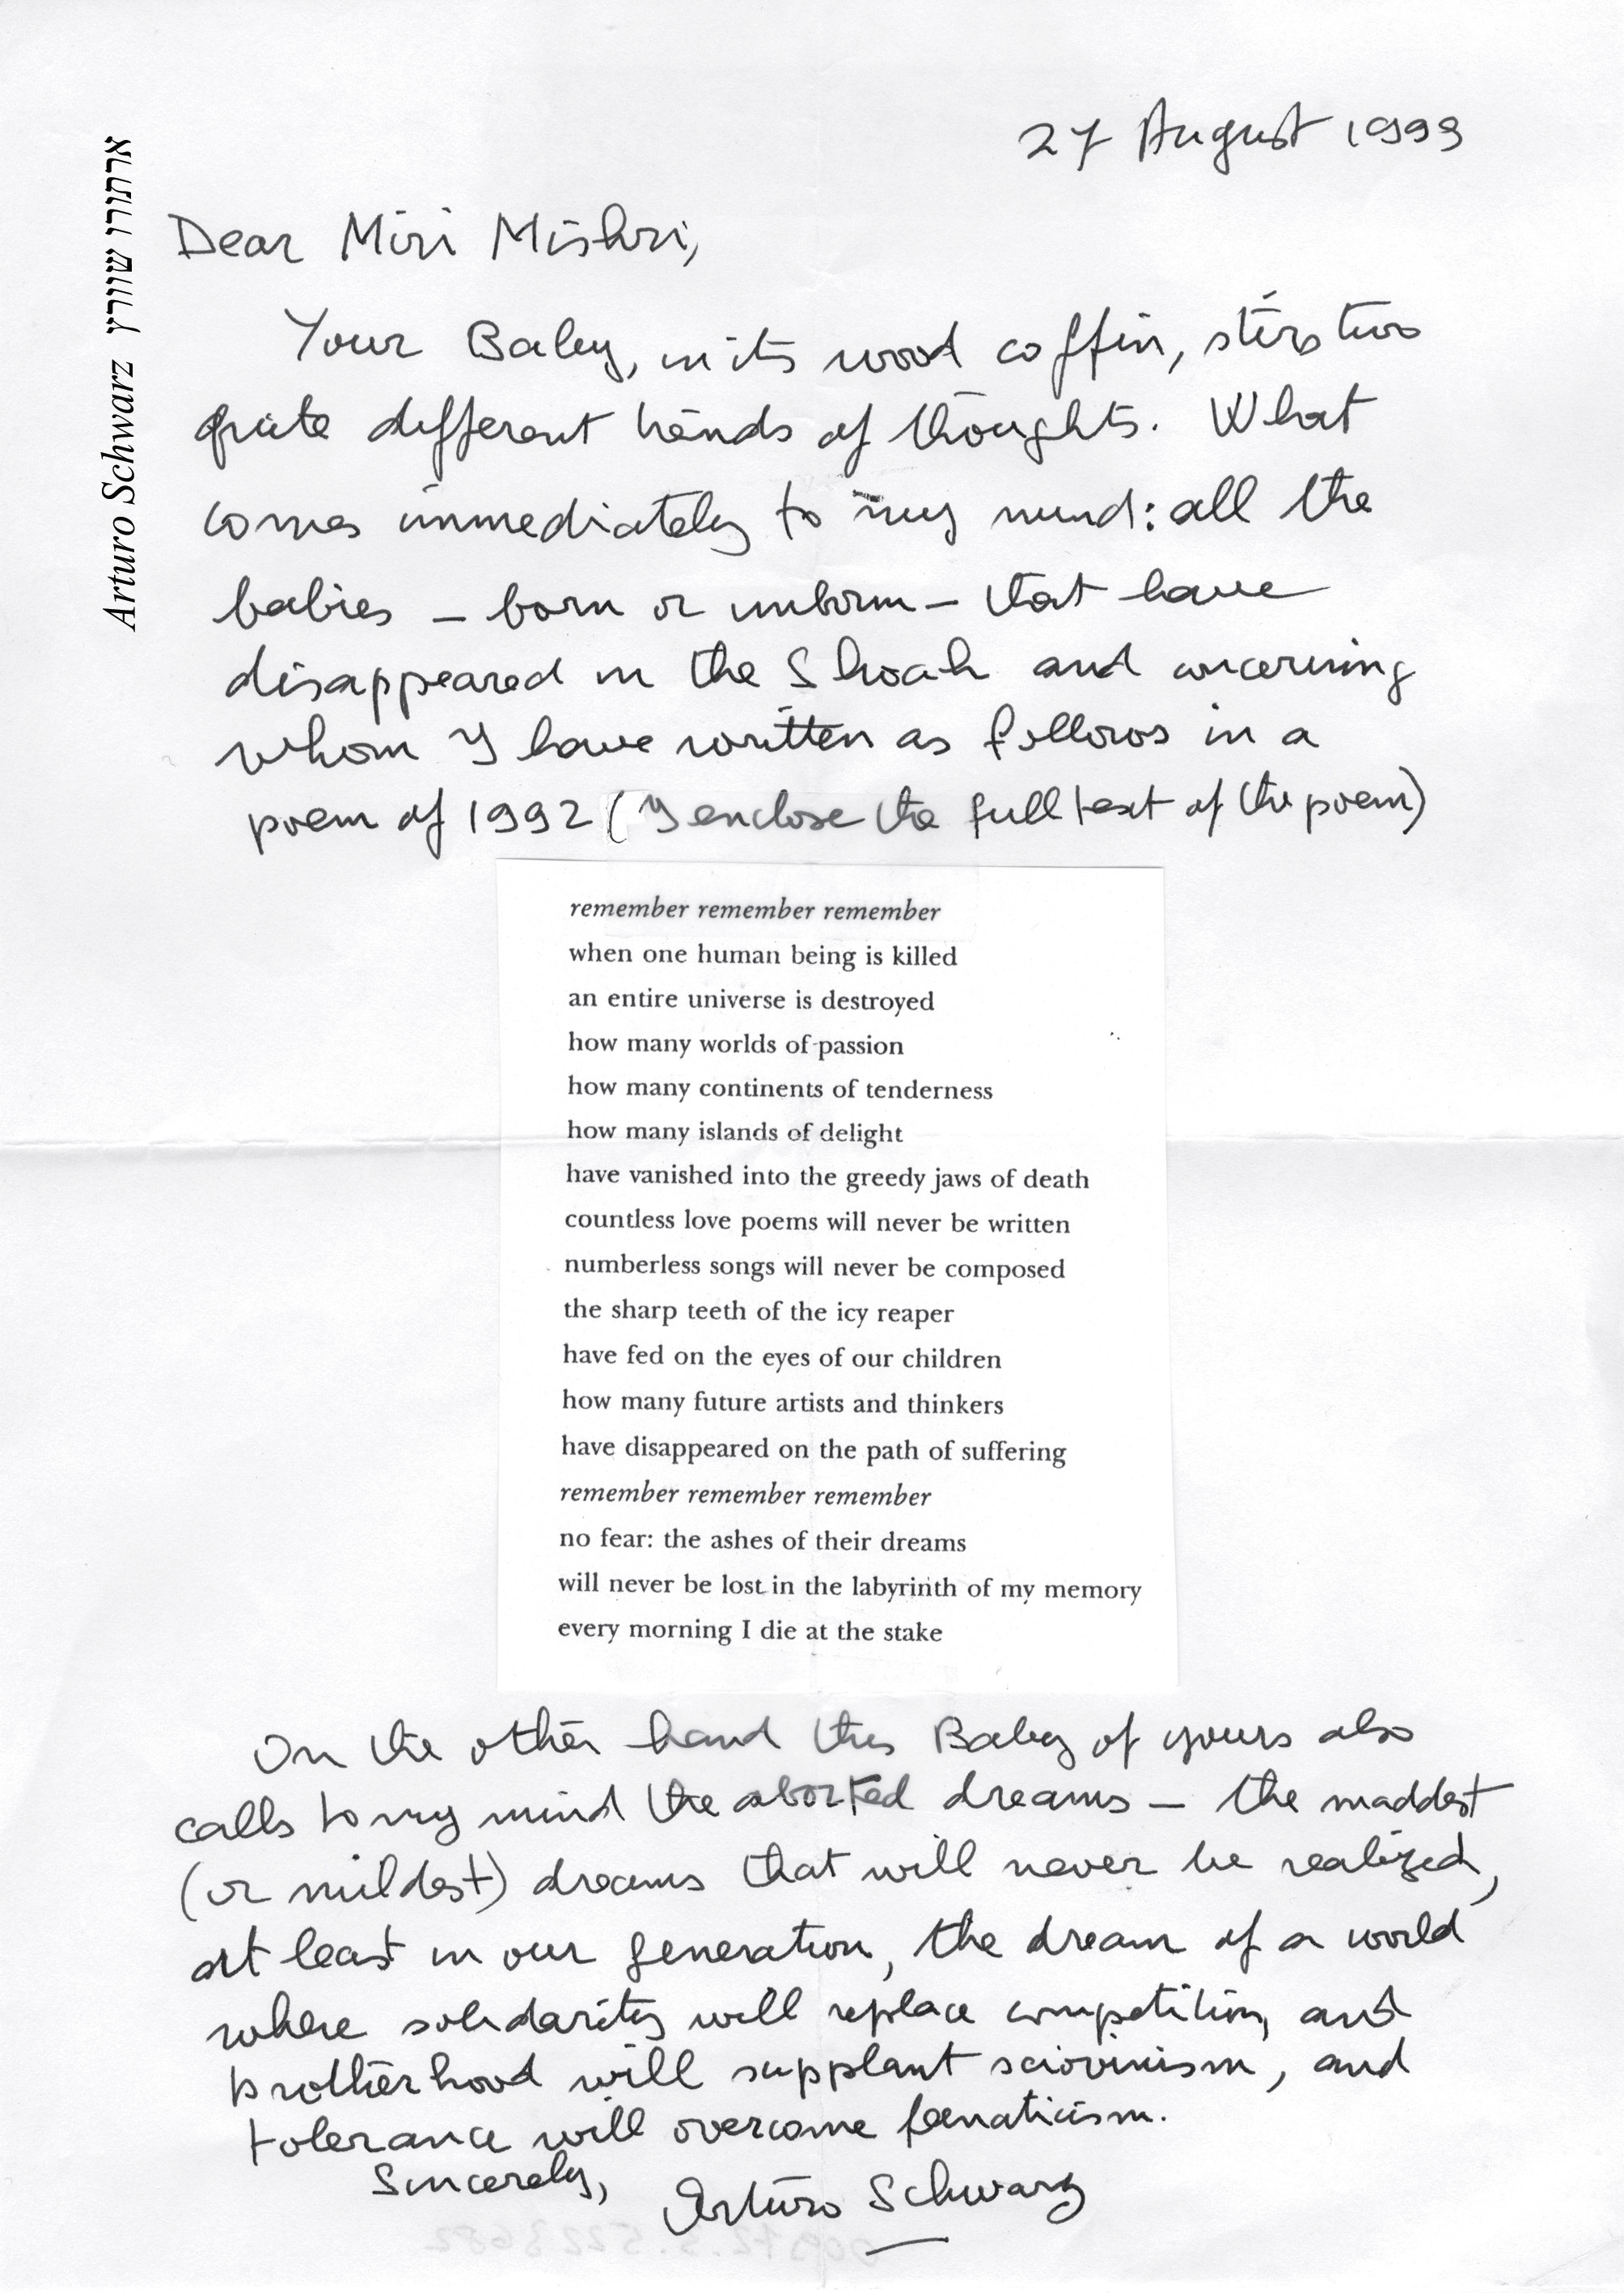 Arturo Schwarz ארתורו שוורץ
27 August 1999
Dear Miri Mishri,
Your Baby, in its wood coffin, stirs two
quite different kinds of thoughts. What
comes immediately to my mind: all the
babies – born or unborn – that have
disappeared in the Shoah and concerning
whom I have written as follows in a
poem of 1992 (I enclose the full text of the poem)
remember remember remember
when one human being is killed
an entire universe is destroyed
how many worlds of passion
how many continents of tenderness
how many islands of delight
have vanished into the greedy jaws of death
countless love poems will never be written
numberless songs will never be composed
the sharp teeth of the icy reaper
have fed on the eyes of our children
how many future artists and thinkers
have disappeared on the path of suffering
remember remember remember
no fear: the ashes of their dreams
will never be lost in the labyrinth of my memory
every morning I die at the stake
On the other hand this Baby of yours also
calls to my mind the aborted dreams – the maddest
(or mildest) dreams that will never be realized,
at least in our generation, the dream of a world
where solidarity will replace competition, and
brotherhood will supplant sciovinism, and
tolerance will overcome fanaticism.
Sincerely, Arturo Schwarz